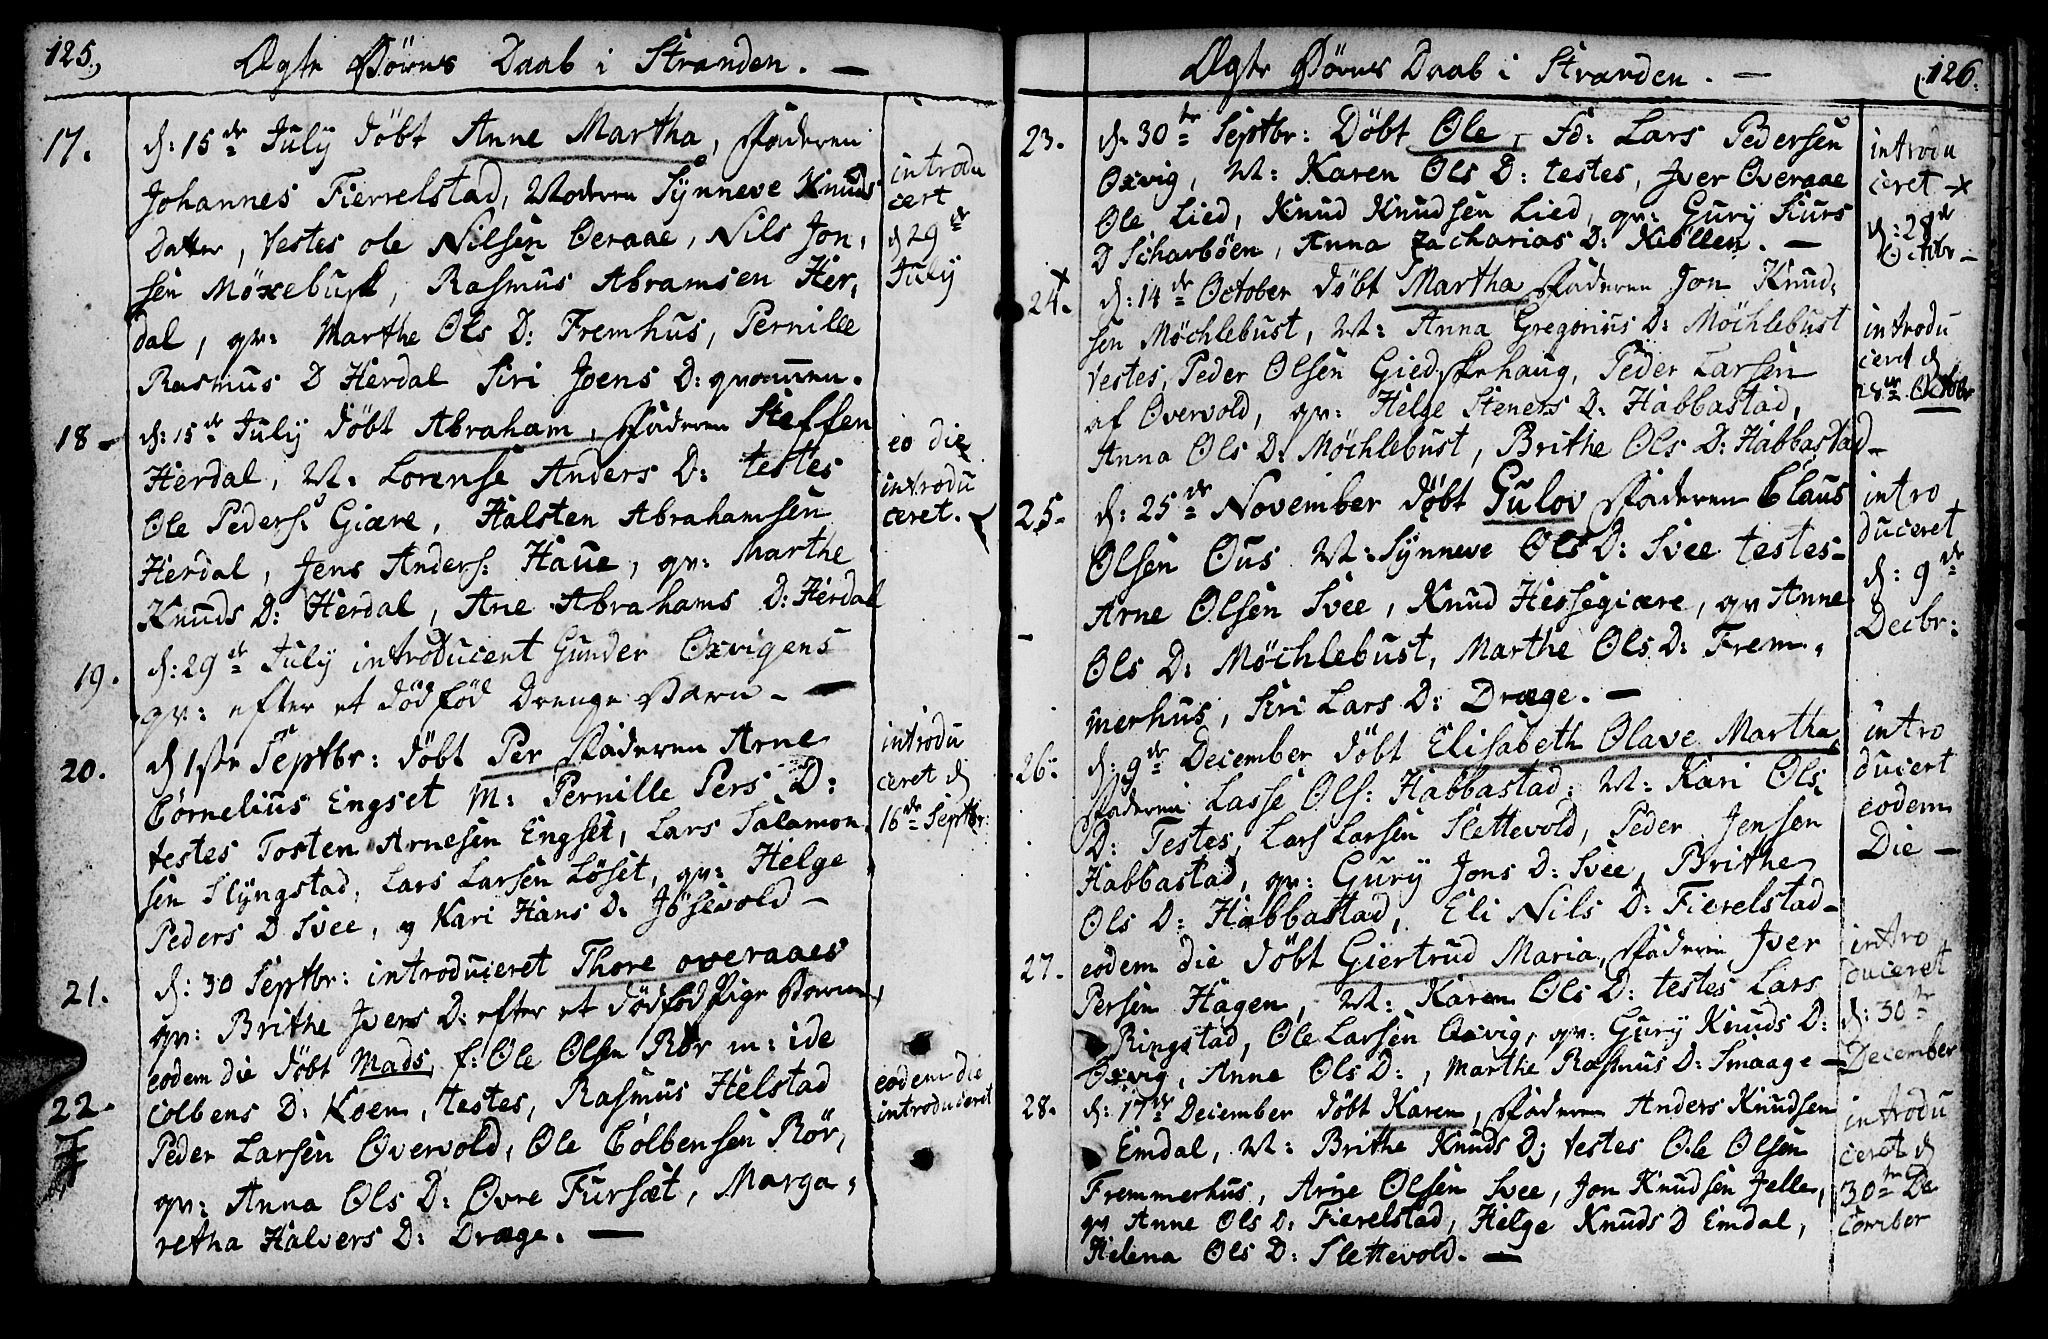 125.
Ægte Börns Daab i Stranden. —
17.
d: 15de July döbt Anne Martha, Faderen
Johannes Fierrelstad, Moderen Synneve Knuds
Datter, testes ole Nilsen Overaae, Nils Jon,
sen Möxebust, Rasmus Abramsen Her,
dal, qv: Marthe Ols D: Fremhus, Pernille
Rasmus D Herdal Siri Joens D:
introdu
cert
d 29de
July
18 -
d: 15de July döbt Abraham, Faderen Steffen
Herdal, M. Lorense Anders D: testes
Ole Peders: Giære, Halsten Abrahamsen
Herdal, Jens Anders: Haue, qv: Marthe
Knuds D: Herdal, Ane Abrahams D: Herdal
eo die
introdu
ceret.
19.
d: 29de July introducent Gunder Oxvigens
qv: efter et dödföd Drenge Barn —
20.
d 1ste Septbr: döbt Per Faderen Arne
Cornelius Engset M: Pernille Pers D:
testes Tosten Arnesen Engset, Lars Salamon
sen Slyngstad, Lars Larsen Löset, qv: Helge
Peders D Svee, og Kari Hans D: Jösevold —
introdu
ceret d
16de Septbr:
21.
d: 30 Septbr: introduceret Thore overaaes
qv: Brithe Ivers D: efter et dödföd Pige Barn,
22.
eodem die döbt Mads, f: Ole Olsen Rör m: ide
Colbens D: Koen, testes, Rasmus Helstad
Peder Larsen Overvold, Ole Colbensen Rör,
qv: Anna Ols D: Övre Fursæt, Marga,
retha Halvers D: Dræge. —
eodem die
introduceret
Ægte Börns Daab i Stranden. —
126.
23.
d. 30te Septbr: Döbt Ole, Fd: Lars Pedersen
Oxvig, M: Karen Ols D: testes, Iver Overaae
Ole Lied, Knud Knudsen Lied, qv: Gury Siurs
D Scharböen, Anna Zacharias D: Kiöllen. —
introdu
ceret
d: 28de
Octbr —
24.
d: 14de October döbt Martha Faderen Jon Knud,
sen Möchlebust, M: Anna Gregorius D: Möchlebust
testes, Peder Olsen Giedskehaug, Peder Larsen
af Overvold, qv: Helge Steners D: Habbastad,
Anna Ols D: Möchlebust, Brithe Ols D: Habbastad —
introdu
ceret d
28de Octobr
25.
d: 25de November döbt Gulov Faderen Claus
Olsen Ous M: Synneve Ols D: Svee testes —
Arne Olsen Svee, Knud Hessegiære, qv Anne
Ols D: Möchlebust, Marthe Ols D: Frem,
merhus, Siri Lars D: Dræge. —
intro
duceret
d: 9de
Decbr:
26.
d: 9de December döbt Elisabeth Olave Martha,
Faderen Lasse Ols: Habbastad: M: Kari Ols
D: Testes, Lars Larsen Slettevold, Peder Jensen
Habbastad, qv: Gury Jons D: Svee, Brithe
Ols D: Habbastad, Eli Nils D: Fierelstad —
intro
ducert
eodem
Die —
27.
eodem die döbt Giertrud Maria, Faderen Iver
Persen Hagen, M: Karen Ols D: testes Lars
Ringstad, Ole Larsen Oxvig, qv: Gury Knuds D:
Oxvig, Anne Ols D:, Marthe Rasmus D: Smaage —
intro
duceret
d: 30te
December
28.
d: 17de December döbt Karen, Faderen Anders Knudsen
Emdal, M: Brithe Knuds D; testes Ole Olsen
Fremmerhus, Arne Olsen Svee, Jon Knudsen Jelle,
qv Anne Ols D: Fierelstad, Helge Knuds D Emdal,
Helena Ols D: Slettevold. —
introdu
ceret d
30te De
cember